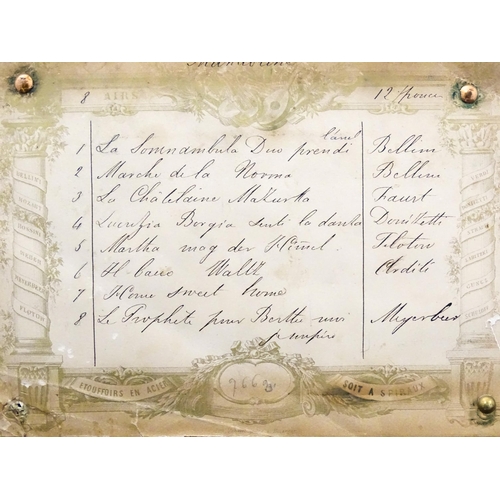 Mandoline
8 AIRS 12 pouces
l'anel
1 La Somnambula Duo prendi Bellini
2 Marche de la Norma Bellini
3 La Châtelaine Mazurka Faust
4 Lucrezia Borgia senti la danza Donizetti
5 Martha mag der Himel Flotow
6 Il bacio Waltz Arditi
7 Home sweet home
8 Le Prophète pour Berthe moi Meyerbeer
j soupire
ETOUFFOIRS EN ACIER 7662 SOIT A SPIRAUX